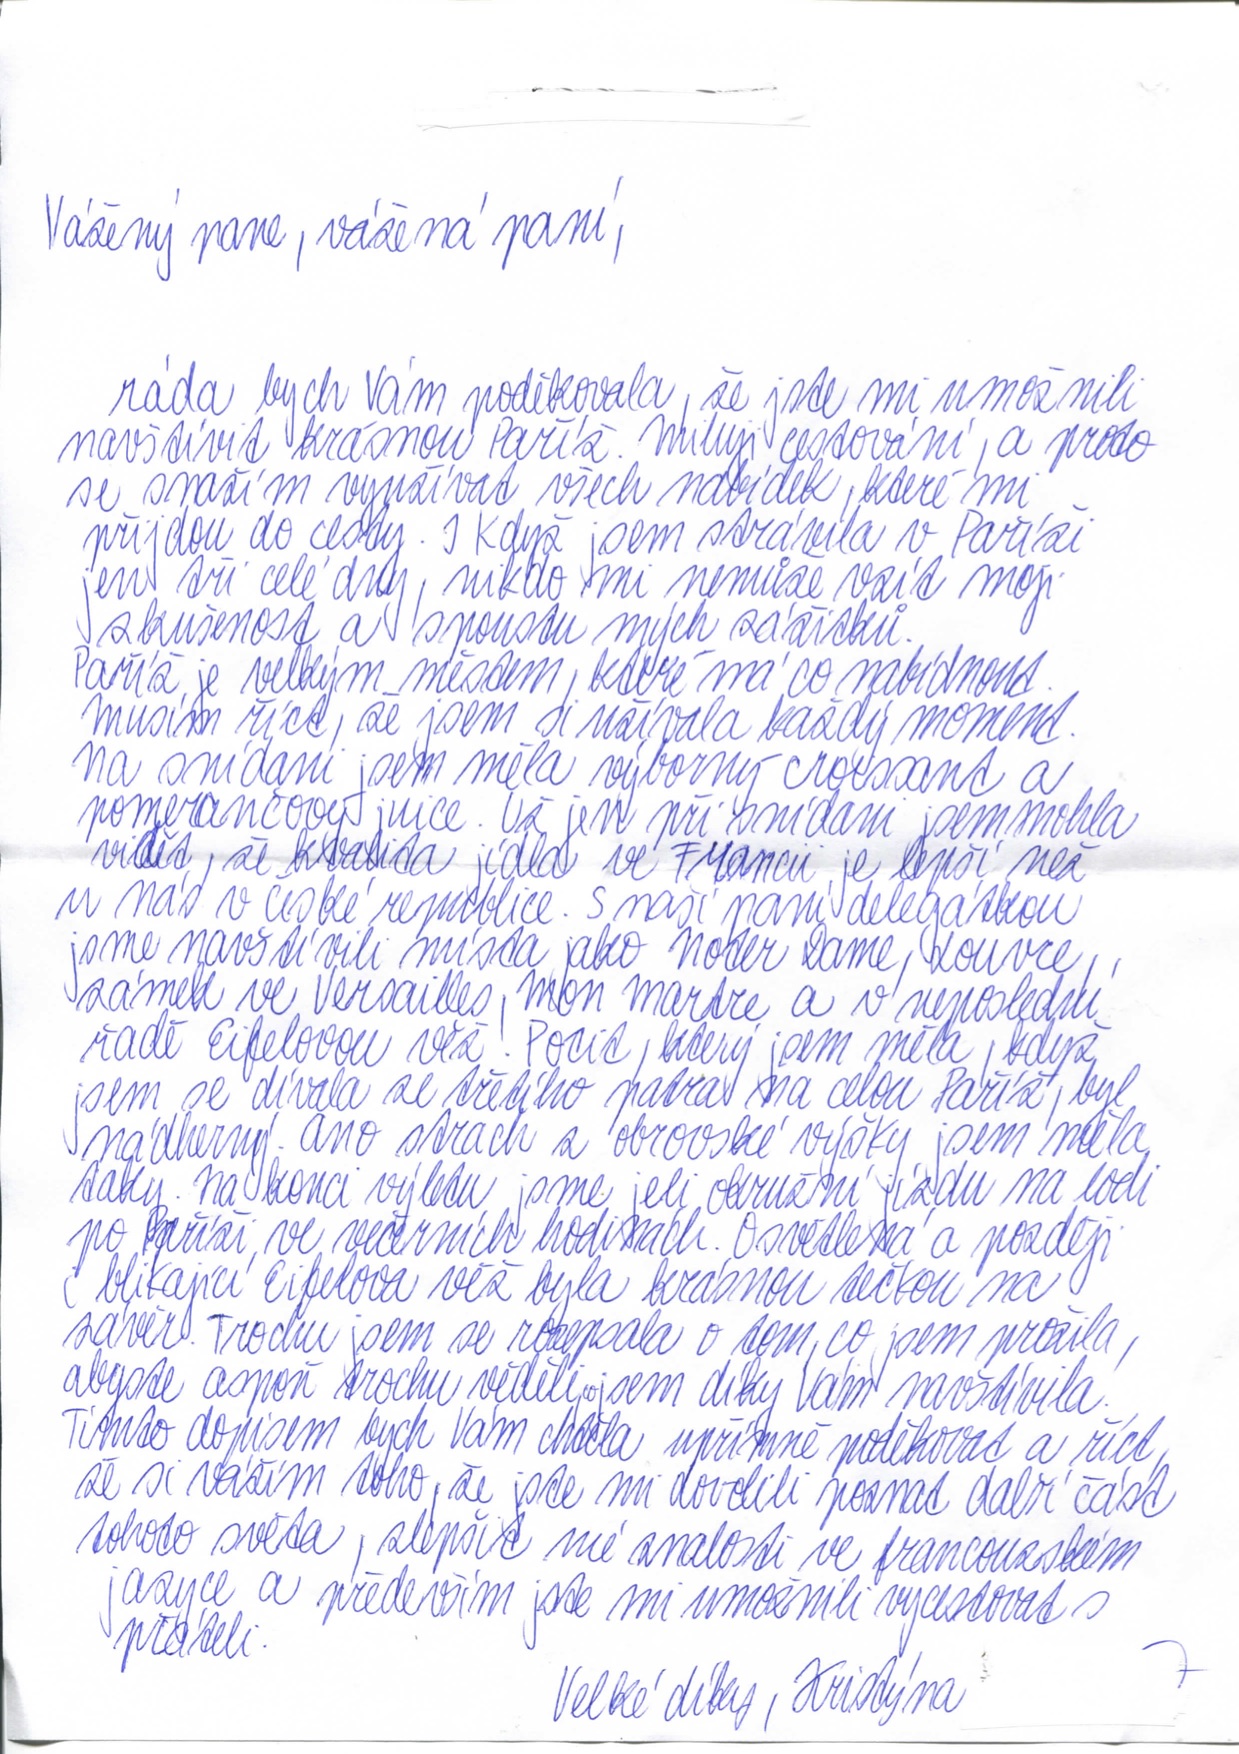 Vážený pane, vážená paní,
ráda bych Vám poděkovala, že jste mi umožnili
navštívit krásnou Paříž. Miluji cestování, a proto
se snažím využívat všech nabídek, které mi
přijdou do cesty. I když jsem strávila v Paříži
jen tři celé dny, nikdo mi nemůže vzít moji
zkušenost a spoustu mých zážitků.
Paříž je velkým městem, které má co nabídnout.
Musím říct, že jsem si užívala každý moment.
Na snídani jsem měla výborný croissant a
pomerančový juice. Už jen při snídani jsem mohla
vidět, že kvalita jídla ve Francii je lepší než
u nás v české republice. S naší paní delegátkou
jsme navštívili místa jako Noter Dame, Louvre, ,
zámek ve Versailles, Mon Martre a v neposlední
řadě Eifelovou věž! Pocit, který jsem měla, když
jsem se dívala ze třetího patra na celou Paříž, byl
nádherný. Ano strach z obrovské výšky jsem měla
taky. Na konci výletu jsme jeli okružní jízdu na lodi
po Paříži, ve večerních hodinách. Osvětlená a později
i blikající Eifelova věž byla krásnou tečkou na
závěr. Trochu jsem se rozepsala o tom, co jsem prožila,
abyste aspoň trochu věděli, co jsem díky Vám navštívila.
Tímto dopisem bych Vám chtěla upřímně poděkovat a říct,
že si vážím toho, že jste mi dovolili poznat další část
tohoto světa, zlepšit mé znalosti ve francouzském
jazyce a především jste mi umožnili vycestovat s
přáteli.
Velké díky, Kristýna
7